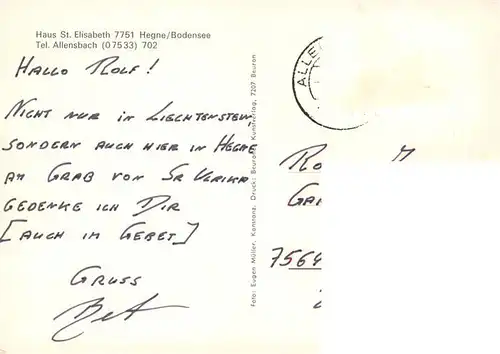 Haus St. Elisabeth 7751 Hegne/Bodensee
Tel. Allensbach (07533) 702
HALLO ROLF!
NICHT NUR IN LIECHTENSTEIN,
SONDERN AUCH HIER IN HEGNE
AM GRAB VON SR ULRIKA
GEDENKE ICH DIR
[AUCH IM GEBET]
GRUSS
Foto: Eugen Müller, Konstanz. Druck: Beuroner Kunstverlag, 7207 Beuron
ALLE
RO
GA
756